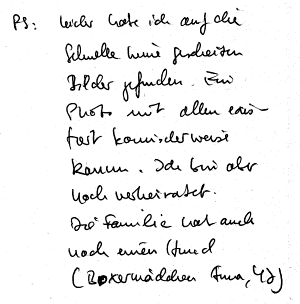 PS: Leider habe ich auf die
Schnelle keine gescheiten
Bilder gefunden. Ein
Photo mit allen exis-
tiert komischerweise
kaum. Ich bin aber
noch verheiratet.
Die Familie hat auch
noch einen Hund
(Boxermädchen Anna, 4J)